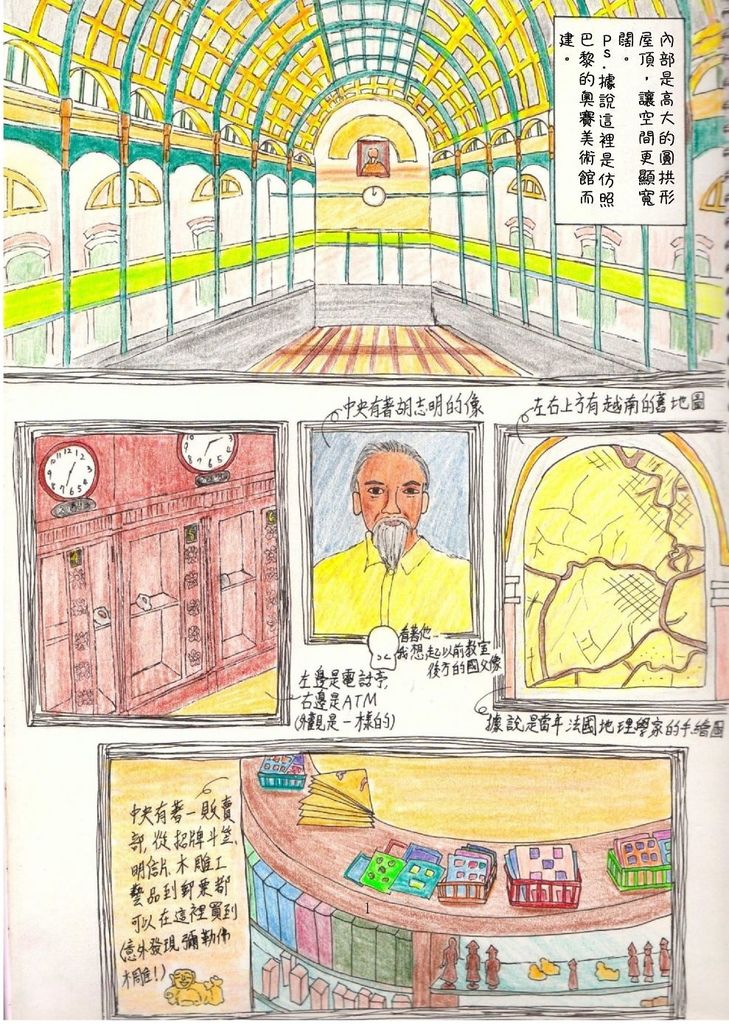 內部是高大的圓拱形
屋頂，讓空間更顯寬
闊。
PS.據說這裡是仿照
巴黎的奧賽美術館而
建。
中央有著胡志明的像
左右上方有越南的舊地圖
看著他…
我想起以前教室
後方的國父像
左邊是電話亭，
右邊是ATM
(外觀是一樣的)
據說是當年法國地理學家的手繪圖
中央有著一販賣
部，從招牌斗笠、
明信片、木雕工
藝品到郵票都
可以在這裡買到
(意外發現彌勒佛
木雕!)
1